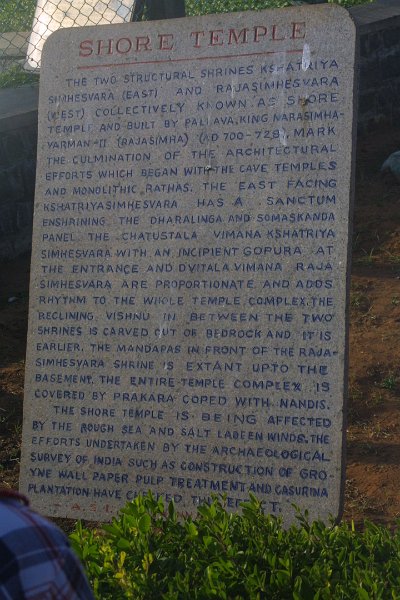 SHORE TEMPLE
THE TWO STRUCTURAL SHRINES KSHATRIYA
SIMHESVARA (EAST) AND RAJASIMHESVARA
(WEST) COLLECTIVELY KNOWN AS SHORE
TEMPLE AND BUILT BY PALLAVA, KING NARASIMHA-
VARMAN-II (RAJASIMHA) (AD 700-728), MARK
THE CULMINATION OF THE ARCHITECTURAL
EFFORTS WHICH BEGAN WITH THE CAVE TEMPLES
AND MONOLITHIC RATHAS. THE EAST FACING
KSHATRIYASIMHESVARA HAS A SANCTUM
ENSHRINING THE DHARALINGA AND SOMASKANDA
PANEL. THE CHATUSTALA VIMANA KSHATRIYA
SIMHESVARA WITH AN INCIPIENT GOPURA AT
THE ENTRANCE AND DVITALA VIMANA RAJA
SIMHESVARA ARE PROPORTIONATE AND ADDS
RHYTHM TO THE WHOLE TEMPLE COMPLEX. THE
RECLINING VISHNU IN BETWEEN THE TWO
SHRINES IS CARVED OUT OF BEDROCK AND IT IS
EARLIER. THE MANDAPAS IN FRONT OF THE RAJA-
SIMHESVARA SHRINE IS EXTANT UPTO THE
BASEMENT. THE ENTIRE TEMPLE COMPLEX IS
COVERED BY PRAKARA COPED WITH NANDIS.
THE SHORE TEMPLE IS BEING AFFECTED
BY THE ROUGH SEA AND SALT LADEEN WINDS. THE
EFFORTS UNDERTAKEN BY THE ARCHAEOLOGICAL
SURVEY OF INDIA SUCH AS CONSTRUCTION OF GRO-
YNE WALL PAPER PULP TREATMENT AND CASURINA
PLANTATION HAVE CHECKED THE EFFECT.